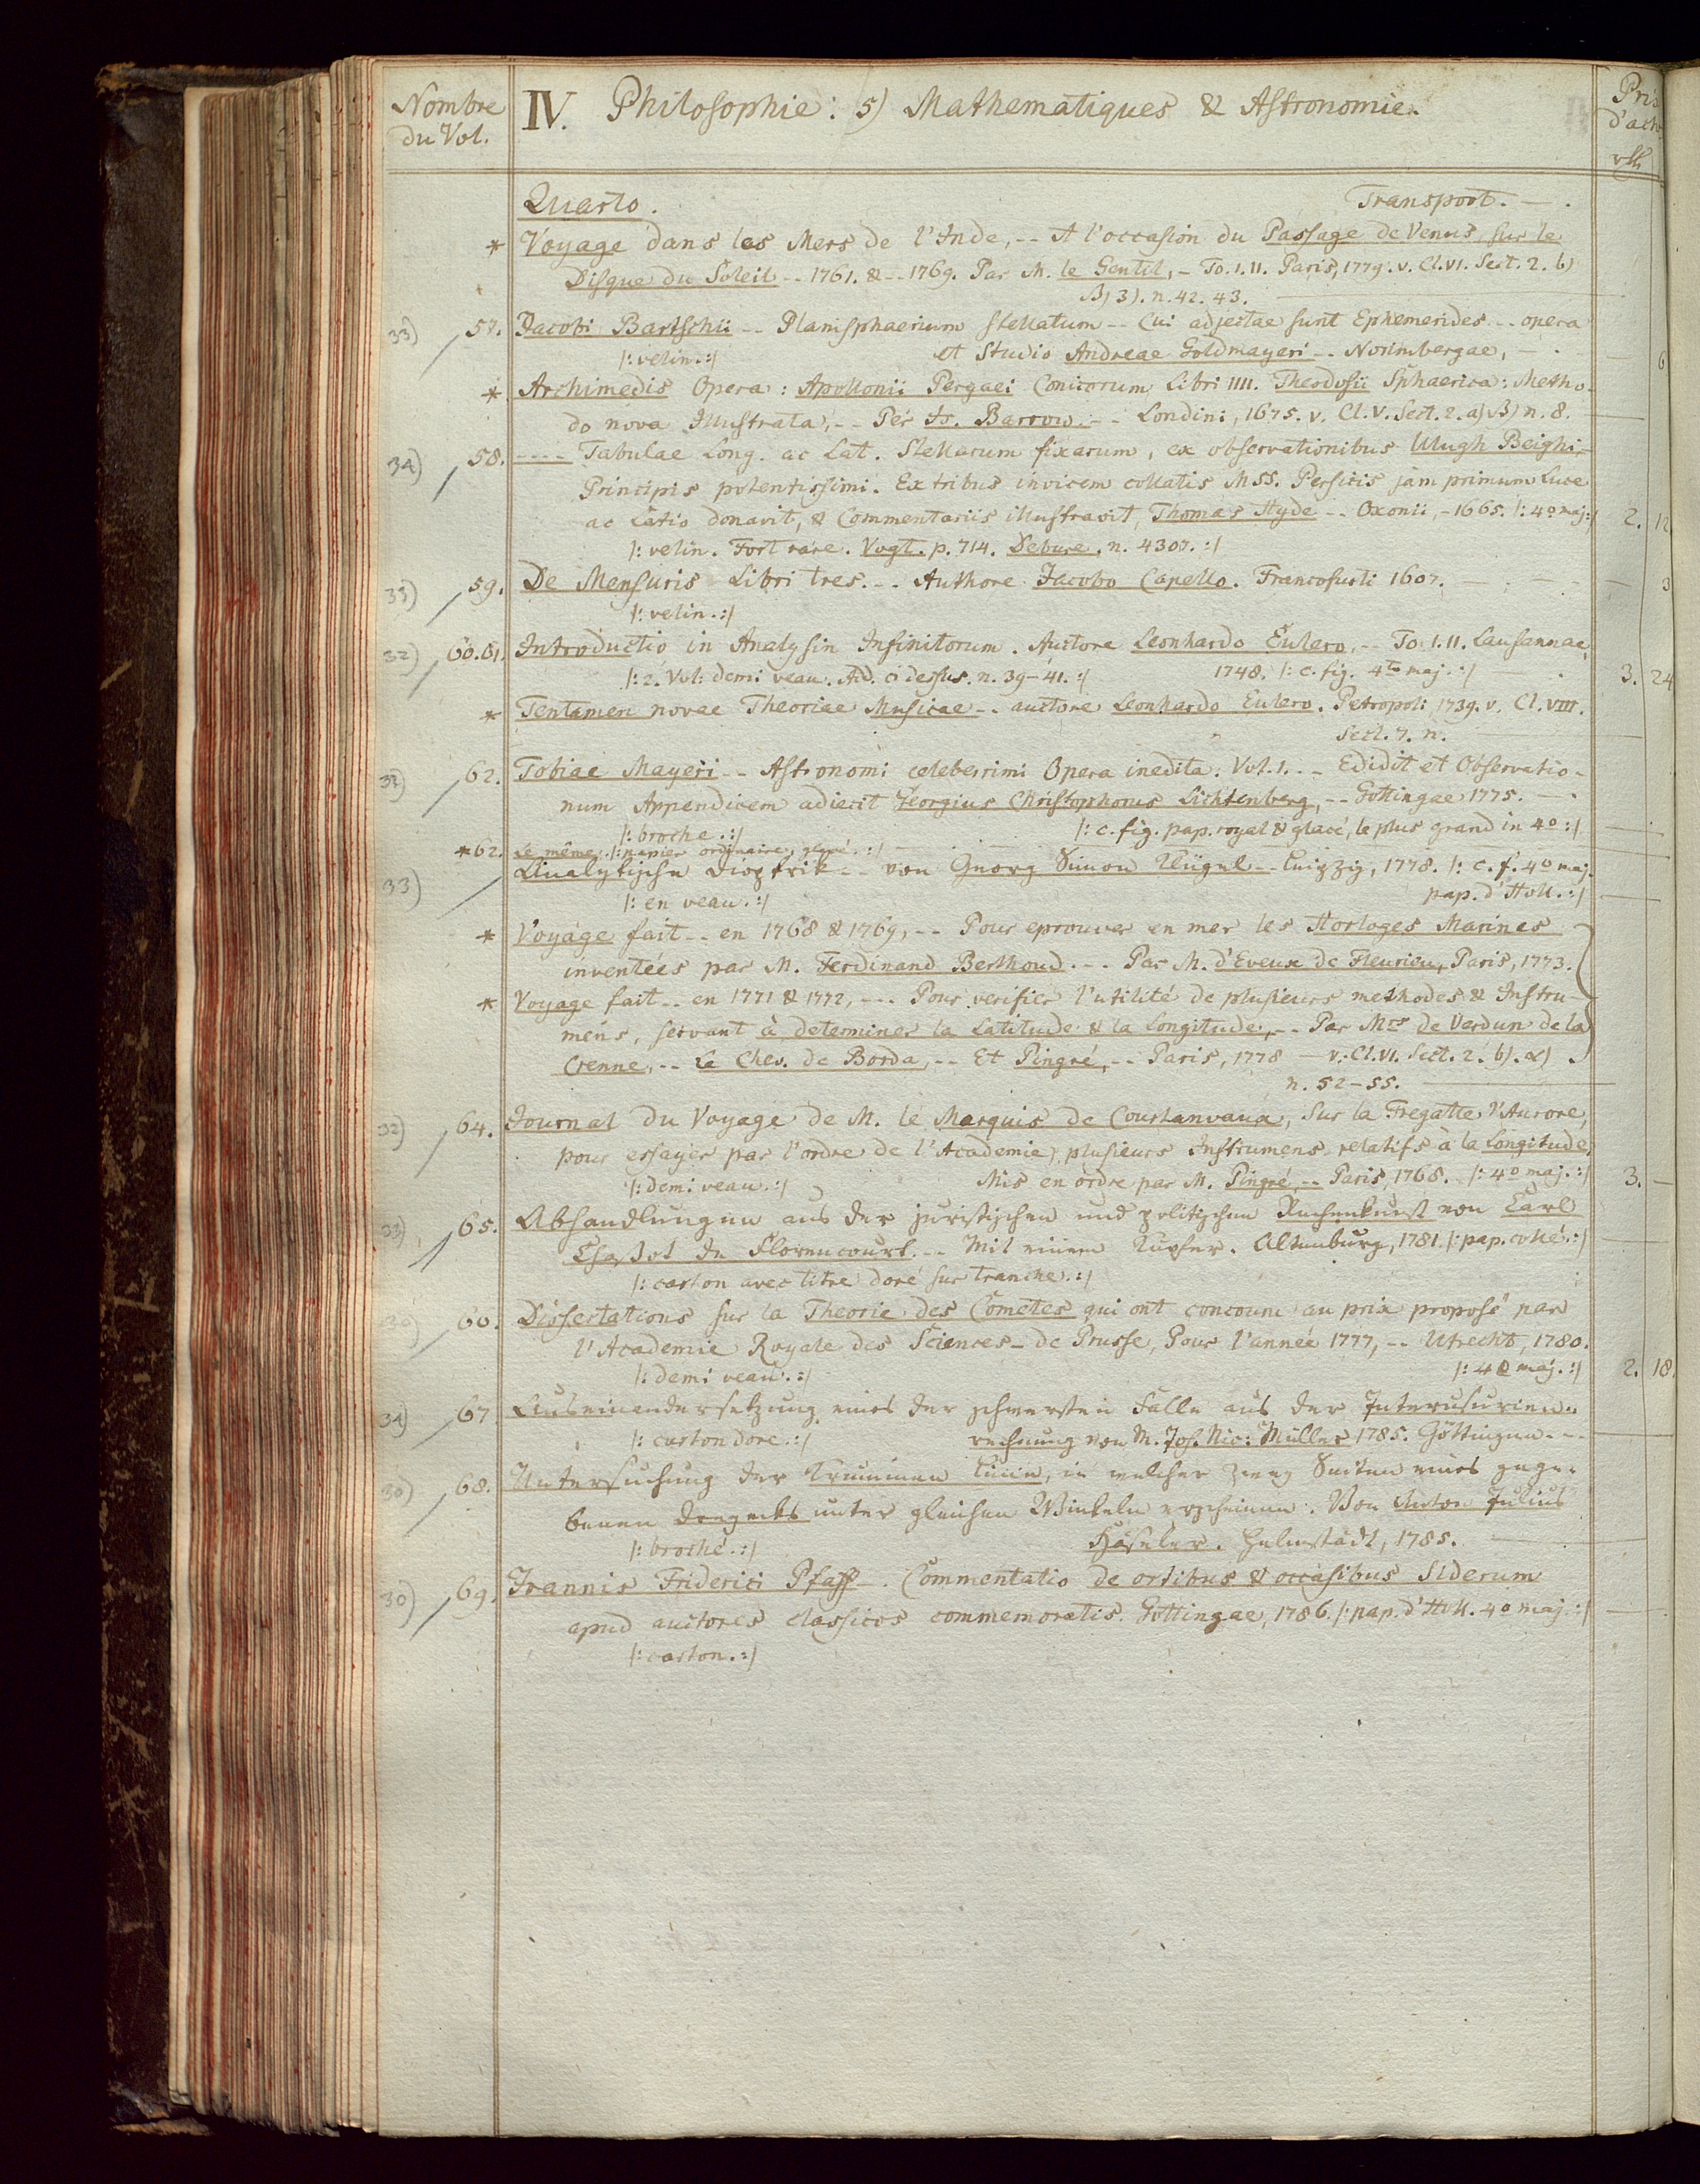 Nombre
du Vol.
IV. Philosophie: 5) Mathematiques & Astronomie.
Prix
d'ach
rth
Quarto. Transport. —.
* Voyage dans les Mers de l'Inde, -- A l'occasion du Passage de Venus, sur le
Disque du Soleil -- 1761. & -- 1769. Par M. le Gentil, - To. I. II. Paris, 1779. v. Cl. VI. Sect. 2. b)
β) 3). n. 42. 43.
33) 57. Jacobi Bartschii -- Planisphaerium stellatum -- Cui adjectae sunt Ephemerides -- opera
|: velin. :| et Studio Andreae Goldmayeri -- Norimbergae, — . — 6
* Archimedis Opera: Apollonii Pergaei Conicorum Libri IIII. Theodosii Sphaerica: Metho-
do nova Illustrata, -- Per Is. Barrow. -- Londini, 1675. v. Cl. V. Sect. 2. a) β) n. 8.
34) 58. ---- Tabulae Long. ac Lat. Stellarum fixarum, ex observationibus Ulugh Beighi,-
Principis potentissimi. Ex tribus invicem collatis MSS. Persicis jam primum Luce
ac Latio donavit, & Commentariis illustravit, Thomas Hyde -- Oxonii, - 1665. |: 4o maj :| 2. 12
|: velin. Fort rare. Vogt. p. 714. Debure. n. 4307. :|
33) 59. De Mensuris Libri tres. -- Authore Jacobo Capello. Francofurti 1607. — 3
|: velin. :|
32) 60. 61. Introductio in Analysin Infinitorum. Auctore Leonhardo Eulero, -- To. I. II. Lausannae,
|: 2. Vol: demi veau. Ad. ci dessus. n. 39-41. :| 1748. |: c. fig. 4to maj. :| 3. 24
* Tentamen novae Theoriae Musicae -- auctore Leonhardo Eulero. Petropoli 1739. v. Cl. VIII.
Sect. 7. n.
32) 62. Tobiae Mayeri -- Astronomi celeberrimi Opera inedita. Vol. I. -- Edidit et Observatio-
num Appendicem adiecit Georgius Christophorus Lichtenberg, -- Gottingae 1775. —
|: broche. :| |: c. fig. pap. royal & glacé, le plus grand in 4o :|
* 62. Le même. |: papier ordinaire, glacé. :|
33) Analytische Dioptrik -- von Georg Simon Klügel -- Leipzig, 1778. |: c. f. 4o maj.
|: en veau. :| pap. d'Holl. :|
* Voyage fait -- en 1768 & 1769, -- Pour eprouver en mer les Horloges Marines
inventées par M. Ferdinand Berthoud. -- Par M. d'Eveux de Fleurieu, Paris, 1773.
* Voyage fait -- en 1771 & 1772, --- Pour verifier l'utilité de plusieurs methodes & Instru-
mens, servant à determiner la Latitude & la Longitude, -- Par Mrs de Verdun de la
Crenne, -- Le Chev. de Borda, -- Et Pingré, -- Paris, 1778 — v. Cl. VI. Sect. 2. b). α)
n. 52-55.
32) 64. Journal du Voyage de M. le Marquis de Courtanvaux, sur la Fregatte l'Aurore,
pour essayer par l'ordre de l'Academie, plusieurs Instrumens relatifs à la Longitude,
|: demi veau. :| Mis en ordre par M. Pingré, -- Paris, 1768. |: 4o maj. :| 3. —
33) 65. Abhandlungen aus der juristischen und politischen Rechenkunst von Carl
Chassot de Florencourt. -- Mit einem Kupfer. Altenburg, 1781. |: pap. collé. :|
|: carton avec titre doré sur tranche. :|
30) 66. Dissertations sur la Theorie des Cometes qui ont concouru au prix proposé par
l'Academie Royale des Sciences - de Prusse, Pour l'année 1777, -- Utrecht, 1780.
|: demi veau. :| |: 4o maj. :| 2. 18
34) 67 Auseinandersetzung eines der schwersten Fälle aus der Interusurien-
|: carton dore. :| rechnung von M. Jos. Nic: Müller 1785. Göttingen. --
30) 68. Untersuchung der krummen Linie, in welcher zwey Seiten eines gege-
benen Dreyecks unter gleichen Winkeln erscheinen. Von Anton Julius
|: broché. :| Häseler. Helmstädt, 1785.
30) 69. Joannis Friderici Pfaff -. Commentatio de ortibus & occasibus Siderum
apud auctores classicos commemoratis. Gottingae, 1786. |: pap. d'Holl. 4o maj. :|
|: carton. :|